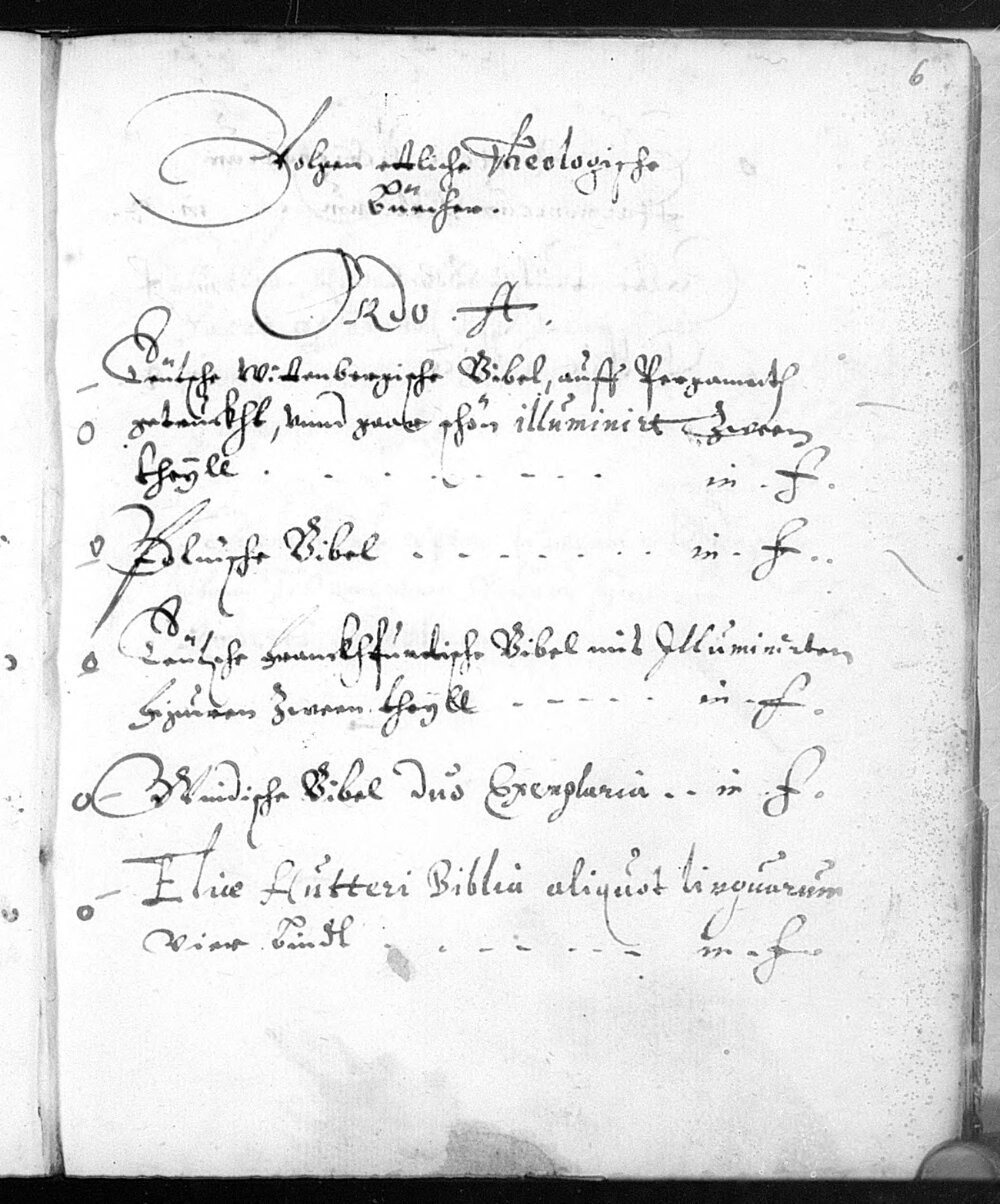 6
Volgen ettliche Theologische
Büecher.
Ordo A.
Teütsche Wittenbergische Bibel, auff Pergament
getruckht, vnnd gaar schön illuminirt Zween
theÿll . . . . - - - - . in . F.
Polnische Bibel - - - - - - in . F..
Teütsche Franckhfurtische Bibel mit Illuminirten
Figuren Zween theÿll - - - - - in . F.
Windische Bibel duo Exemplaria . . in F.
Eliæ Hutteri Biblia aliquot linguarum
vier Bindt . . - - - - - in . F.